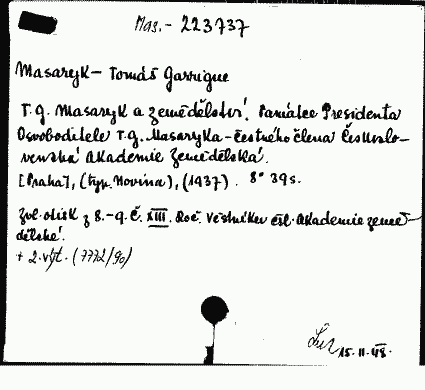 Mas.- 223737
Masaryk - Tomáš Garrigue
T.G. Masaryk a zemědělství. Památce Presidenta
Osvoboditele T.G. Masaryka - čestného člena Českoslo-
venská Akademie Zemědělská.
[Praha], (typ. Novina), (1937). 8° 39 s.
Zvl. otisk z 8.-9. č. XIII. Roč. Věstníku čsl. Akademie země-
dělské.
+ 2. výt. (7772/90)
15.II.48.